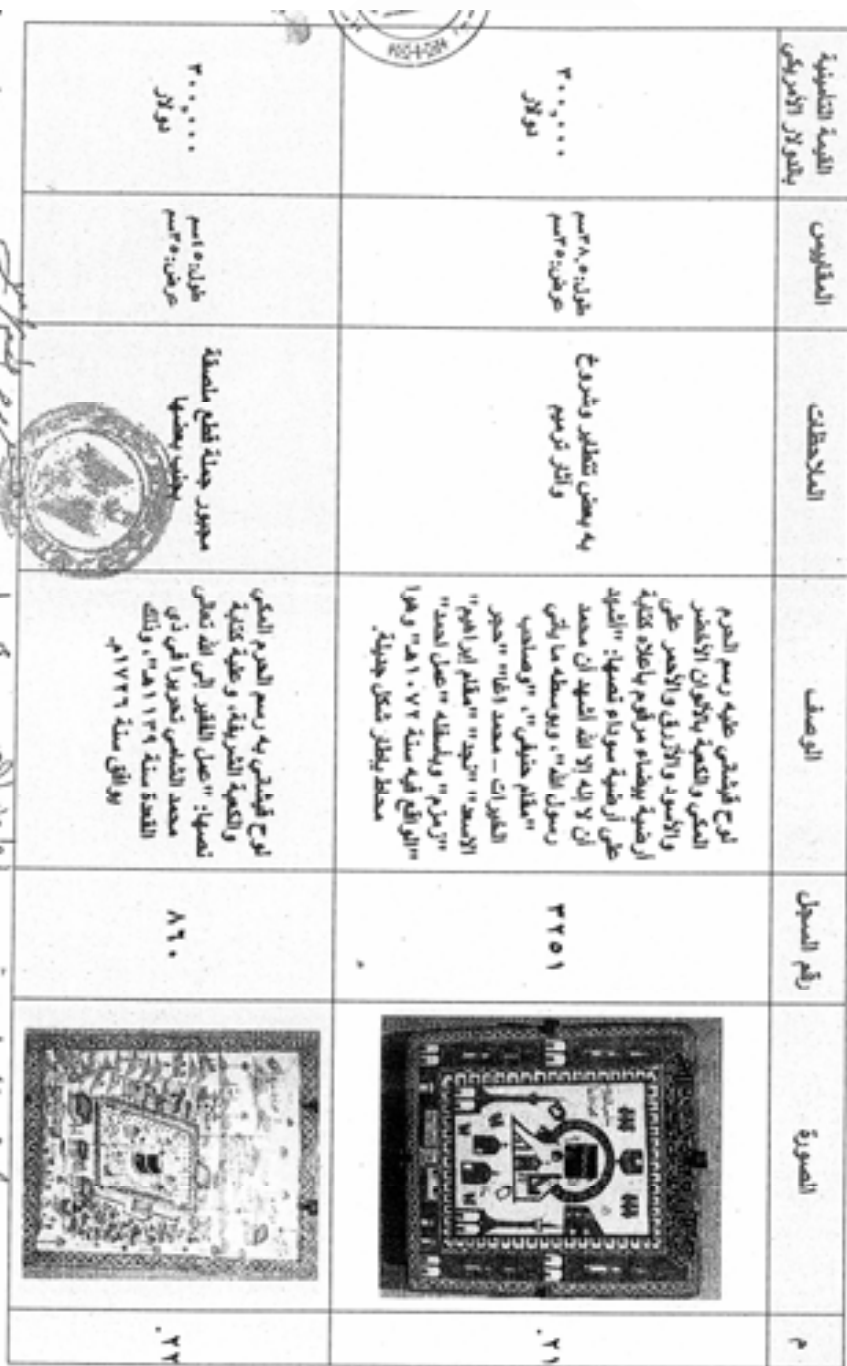 م
الصورة
رقم السجل
الوصف
الملاحظات
المقاييس
القيمة التأمينية
بالدولار الأمريكي
٢١.
٣٢٥١
لوح قيشاني عليه رسم الحرم
المكي والكعبة بالألوان الأخضر
والأسود والأزرق والأحمر على
أرضية بيضاء مرقوم بأعلاه كتابة
على أرضية سوداء نصها: "أشهد
أن لا إله إلا الله أشهد أن محمد
رسول الله"، وبوسطه ما يأتي
"مقام حنيفي"، "وصاحب
الخيرات – محمد اغا" "حجر
الاسعد" "نجد" "مقام ابراهيم"
"زمزم" وبأسفله "عمل احمد"
"الواقع فيه سنة ١٠٧٢هـ" وهوا
محاط بإطار شكل جديلة.
به بعض تنطاير وشروخ
وآثار ترميم
طول:٣٨,٥سم
عرض:٣٥سم
٣٠٠,٠٠٠
دولار
٢٢.
٨٦٠
لوح قيشاني به رسم الحرم المكي
والكعبة الشريفة، وعلية كتابة
نصها: "عمل الفقير إلى الله تعالى
محمد الشامي تحريرا في ذي
القعدة سنة ١١٣٩هـ"، وذلك
يوافق سنة ١٧٢٦م.
مجبور جملة قطع ملصقة
بجنب بعضها
طول:٤٥سم
عرض:٣٥سم
٣٠٠,٠٠٠
دولار